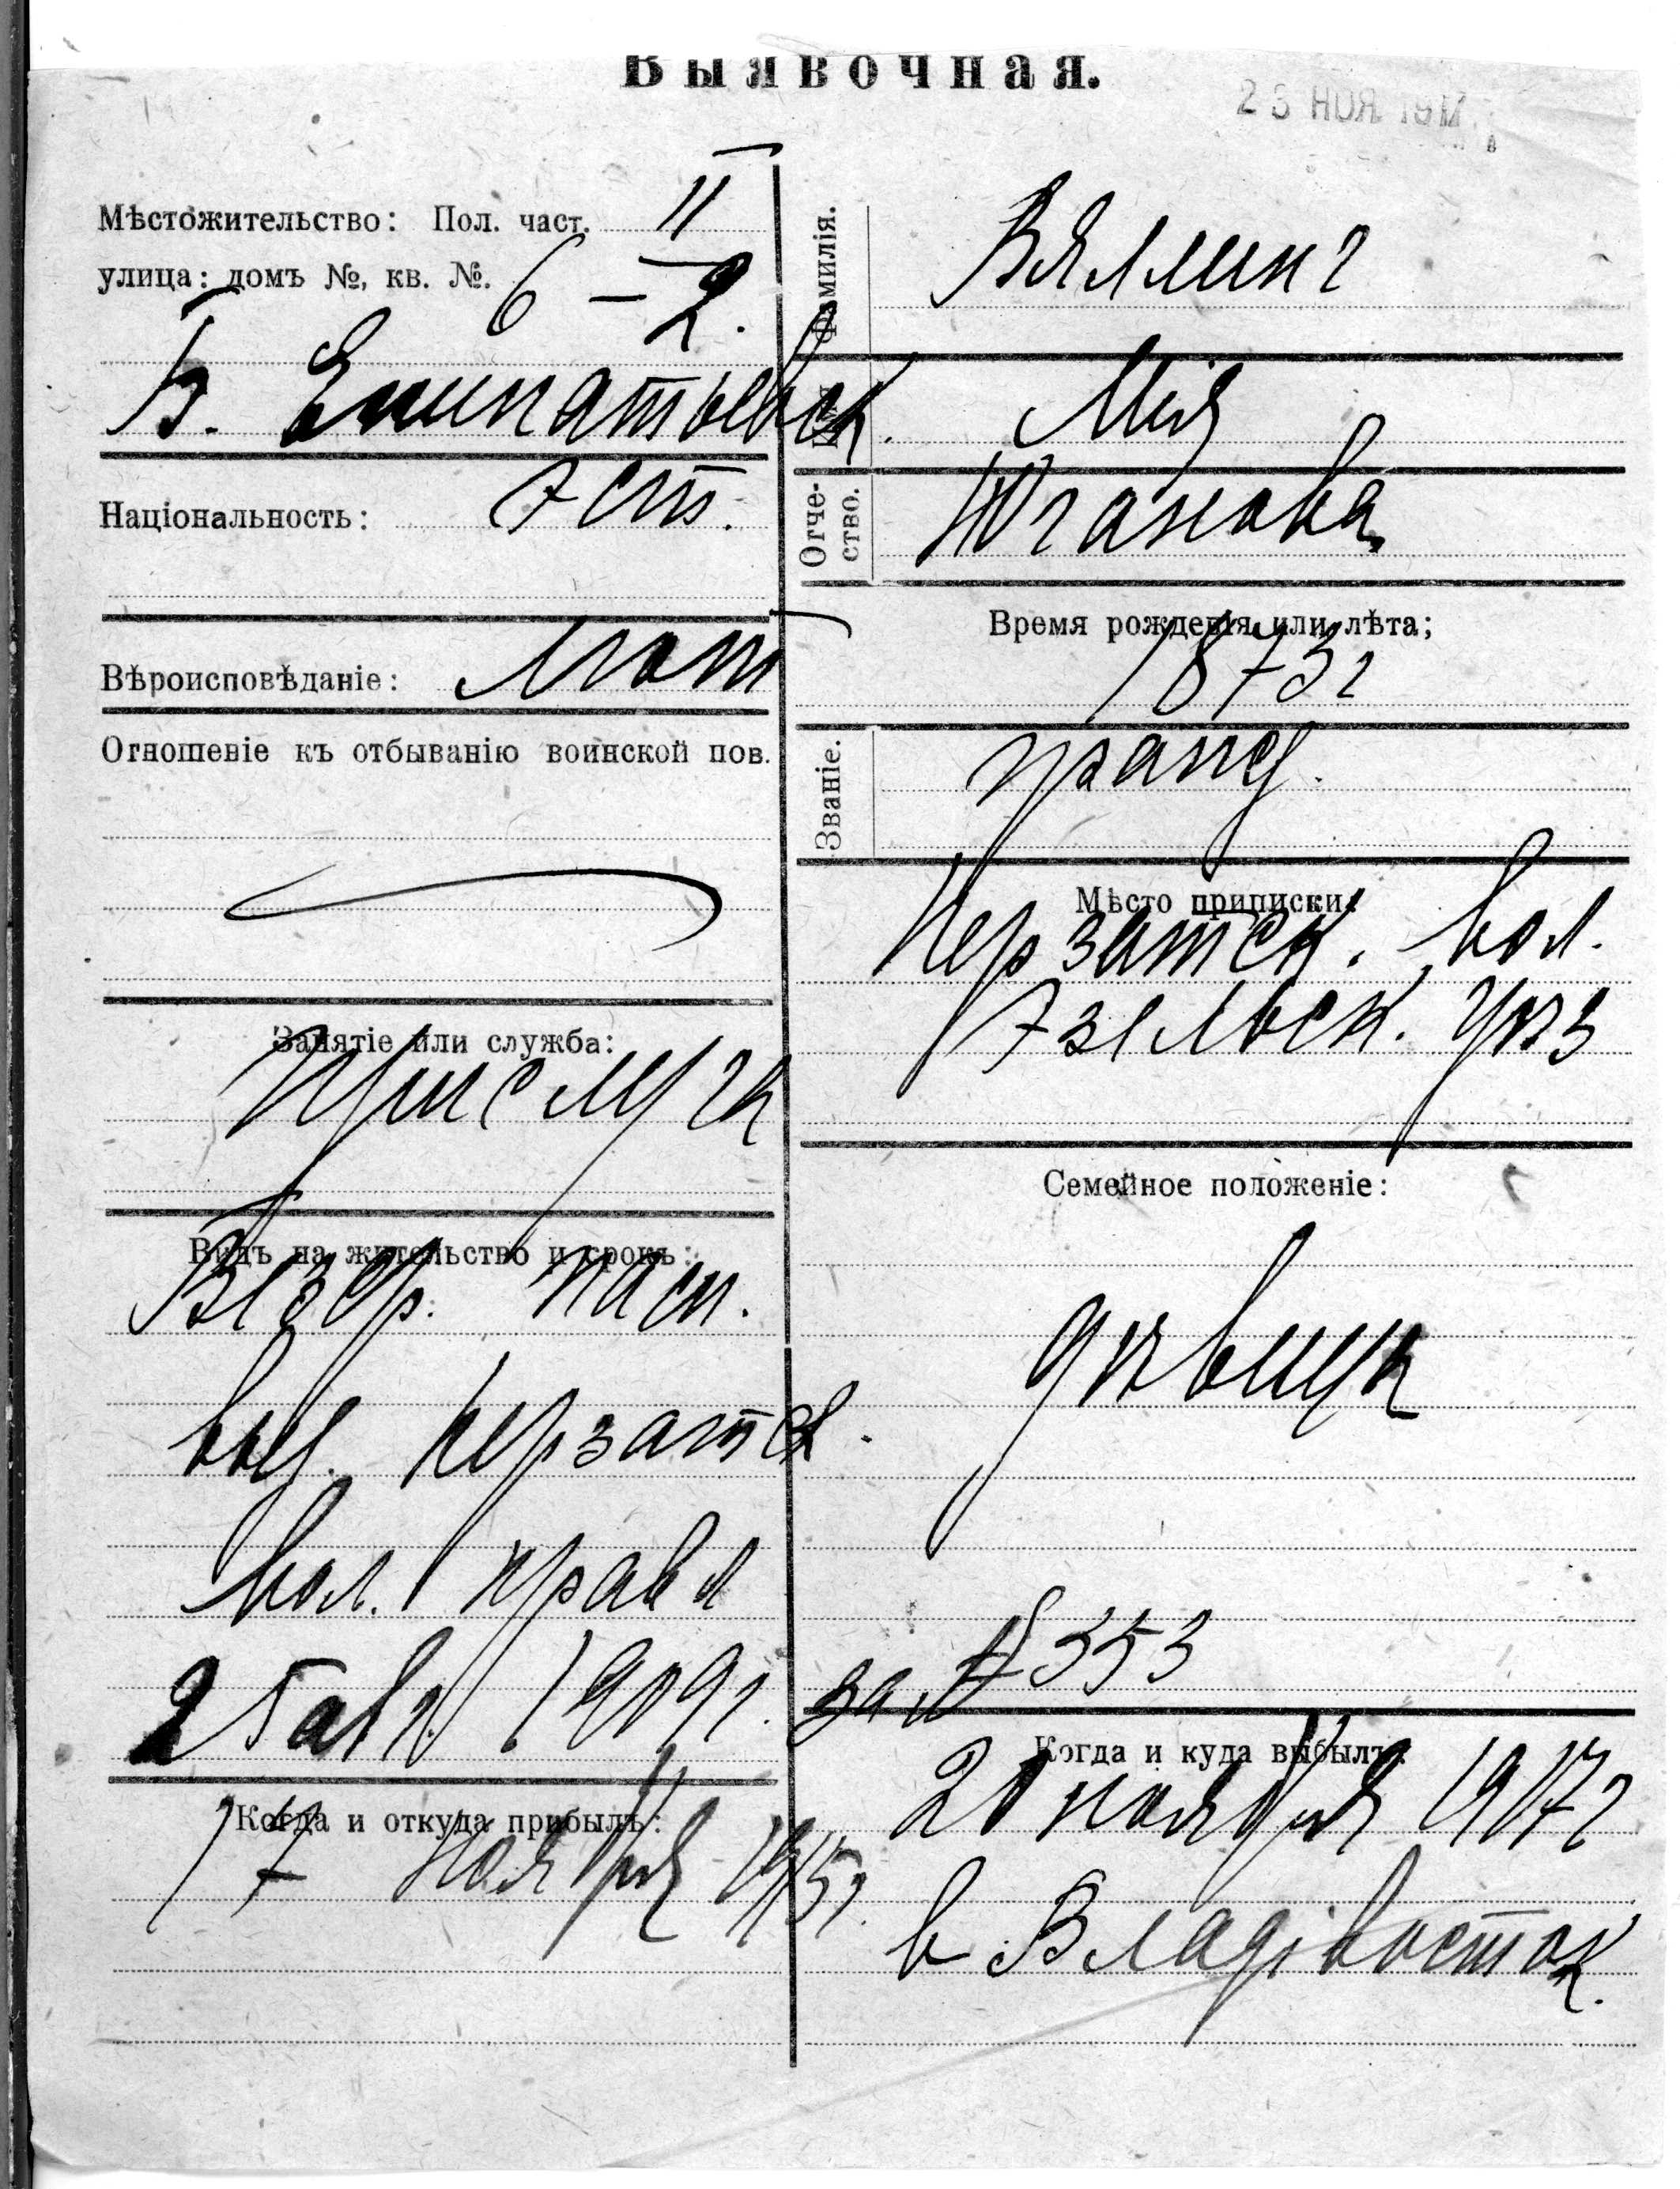 Выявочная.
23 НОЯ 1917
Мѣстожительство: Пол. част. II
улица: домъ №, кв. №. 6 – 2.
Б. Екипатьевск.
Національность: Эст.
Вѣроисповѣданіе: Лют
Отношеніе къ отбыванію воинской пов.
Занятіе или служба:
Прислуга
Видъ на жительство и срокъ:
Безср. пасп.
выд. Керзатск.
вол. правл
25 авг. 1909 г. за № 353
Когда и откуда прибылъ:
17 ноября 1915 г.
Фамилія. Вяллинг
Имя Мія
Отчество. Юганова
Время рожденія или лѣта;
1873 г
Званіе. гражд.
Мѣсто приписки:
Керзатск. вол.
Эзельск. уѣз
Семейное положеніе:
дѣвица
Когда и куда выбылъ:
20 ноября 1917 г
в Владівосток.